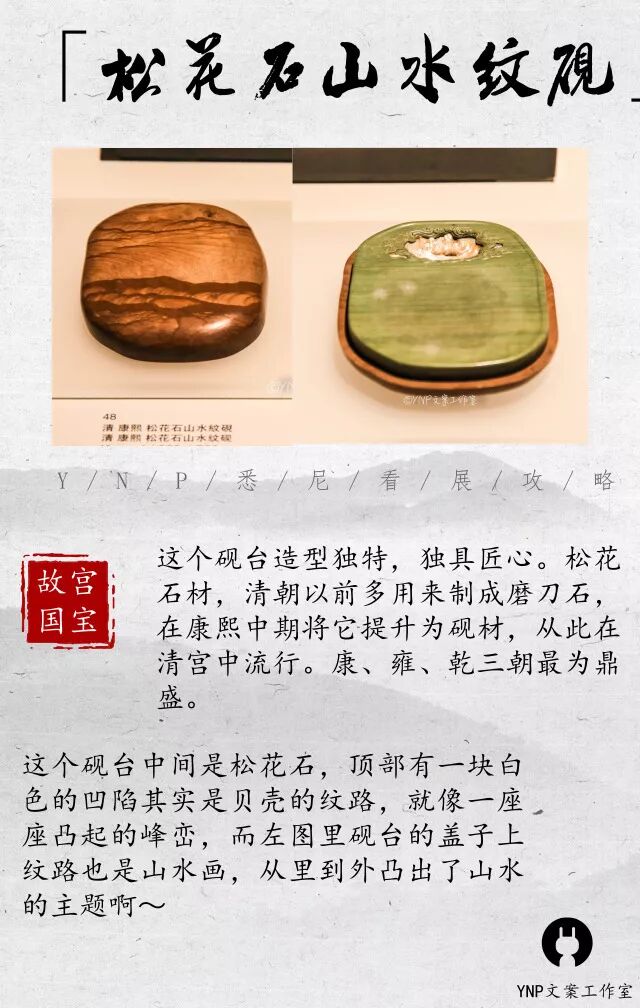 「松花石山水纹砚」
©YNP
©YNP文案工作室
48
清 康熙 松花石山水紋硯
清 康熙 松花石山水纹砚
Y/N/P/悉/尼/看/展/攻/略
故宫
国宝
这个砚台造型独特，独具匠心。松花
石材，清朝以前多用来制成磨刀石，
在康熙中期将它提升为砚材，从此在
清宫中流行。康、雍、乾三朝最为鼎
盛。
这个砚台中间是松花石，顶部有一块白
色的凹陷其实是贝壳的纹路，就像一座
座凸起的峰峦，而左图里砚台的盖子上
纹路也是山水画，从里到外凸出了山水
的主题啊～
YNP文案工作室